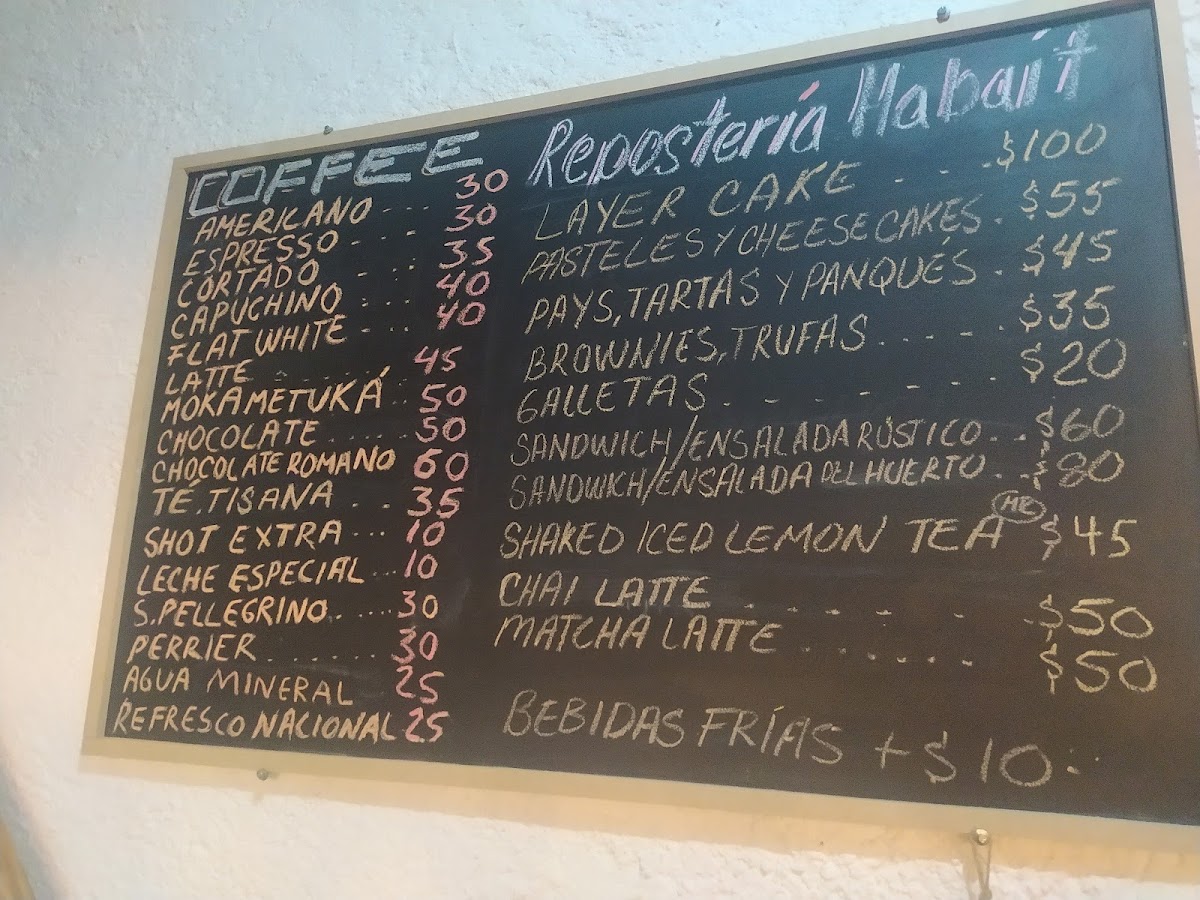 COFFEE
AMERICANO.... 30
ESPRESSO.... 30
CORTADO.... 35
CAPUCHINO.... 40
FLAT WHITE.... 40
LATTE........ 45
MOKAMETUKÁ.. 50
CHOCOLATE...... 50
CHOCOLATE ROMANO 60
TÉ.TISANA... 35
SHOT EXTRA... 10
LECHE ESPECIAL... 10
S.PELLEGRINO...... 30
PERRIER........ 30
AGUA MINERAL 25
REFRESCO NACIONAL 25
Repostería Habait
LAYER CAKE.... $100
PASTELES Y CHEESECAKES. $55
PAYS, TARTAS Y PANQUÉS. $45
BROWNIES, TRUFAS..... $35
GALLETAS....... $20
SANDWICH/ENSALADA RÚSTICO.. $60
SANDWICH/ENSALADA DEL HUERTO.. $80
SHAKED ICED LEMON TEA $45
CHAI LATTE........ $50
MATCHA LATTE...... $50
BEBIDAS FRÍAS + $10